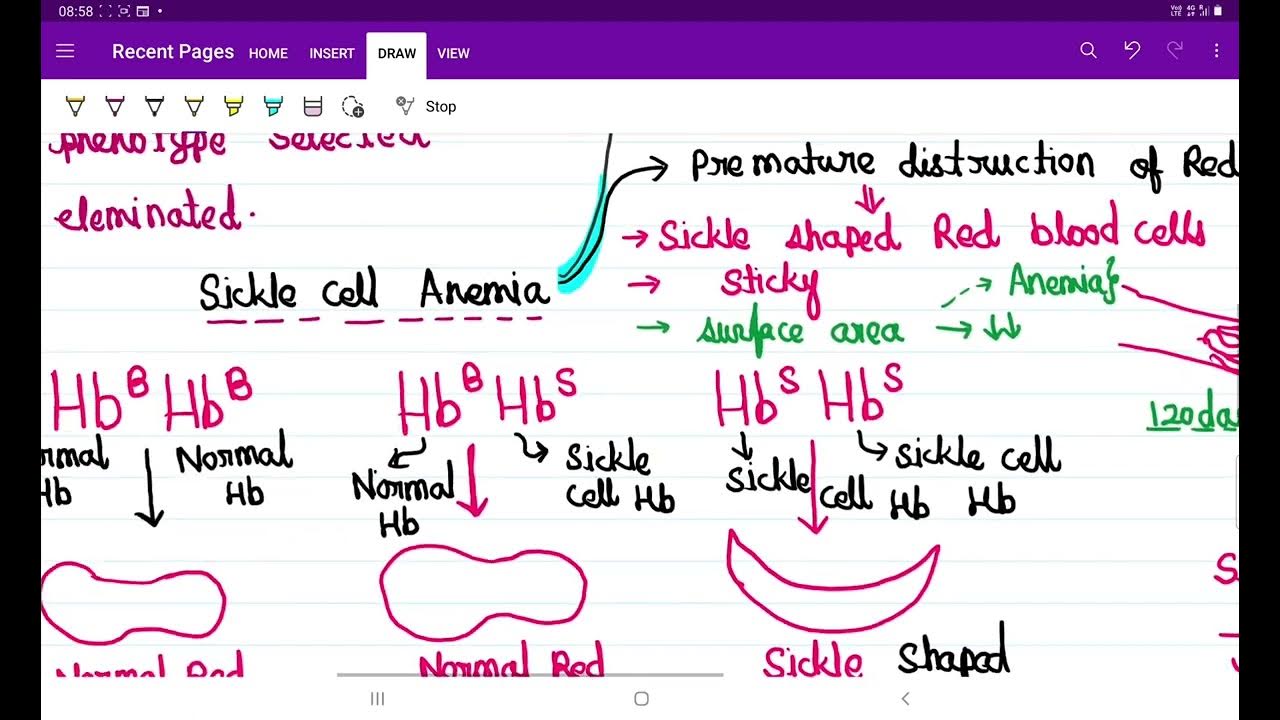 08:58
VoD LTE 4G R
Recent Pages HOME INSERT DRAW VIEW
Stop
phenotype selected
eleminated.
Sickle cell Anemia
→ Premature distruction of Red
⇓
→ Sickle shaped Red blood cells
→ sticky
→ Anemia}
→ surface area → ↓↓
Hbᴮ Hbᴮ
Hbᴮ Hbˢ
Hbˢ Hbˢ
120 da
rmal Hb
Normal Hb
Normal Hb
Sickle cell Hb
Sickle cell Hb
sickle cell Hb
S
Normal Red
Normal Red
Sickle shaped